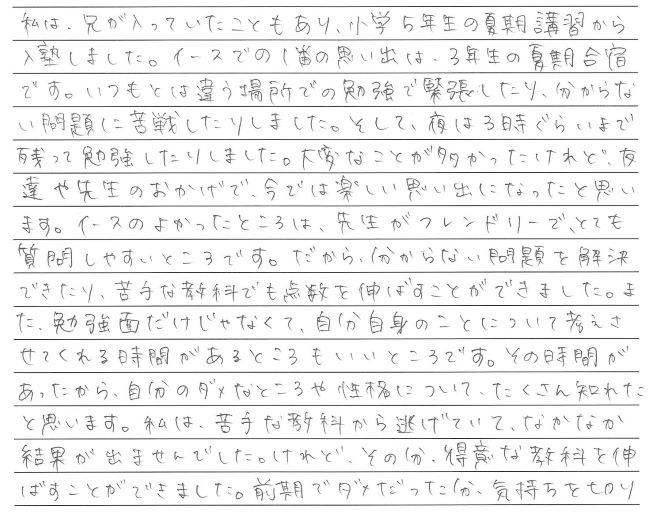 私は、兄が入っていたこともあり、小学5年生の夏期講習から
入塾しました。イースでの1番の思い出は、3年生の夏期合宿
です。いつもとは違う場所での勉強で緊張したり、分からな
い問題に苦戦したりしました。そして、夜は3時ぐらいまで
残って勉強したりしました。大変なことが多かったけれど、友
達や先生のおかげで、今では楽しい思い出になったと思い
ます。イースのよかったところは、先生がフレンドリーで、とても
質問しやすいところです。だから、分からない問題を解決
できたり、苦手な教科でも点数を伸ばすことができました。ま
た、勉強面だけじゃなくて、自分自身のことについて考えさ
せてくれる時間があるところもいいところです。その時間が
あったから、自分のダメなところや性格について、たくさん知れた
と思います。私は、苦手な教科から逃げていて、なかなか
結果が出ませんでした。けれど、その分、得意な教科を伸
ばすことができました。前期でダメだった分、気持ちを切り